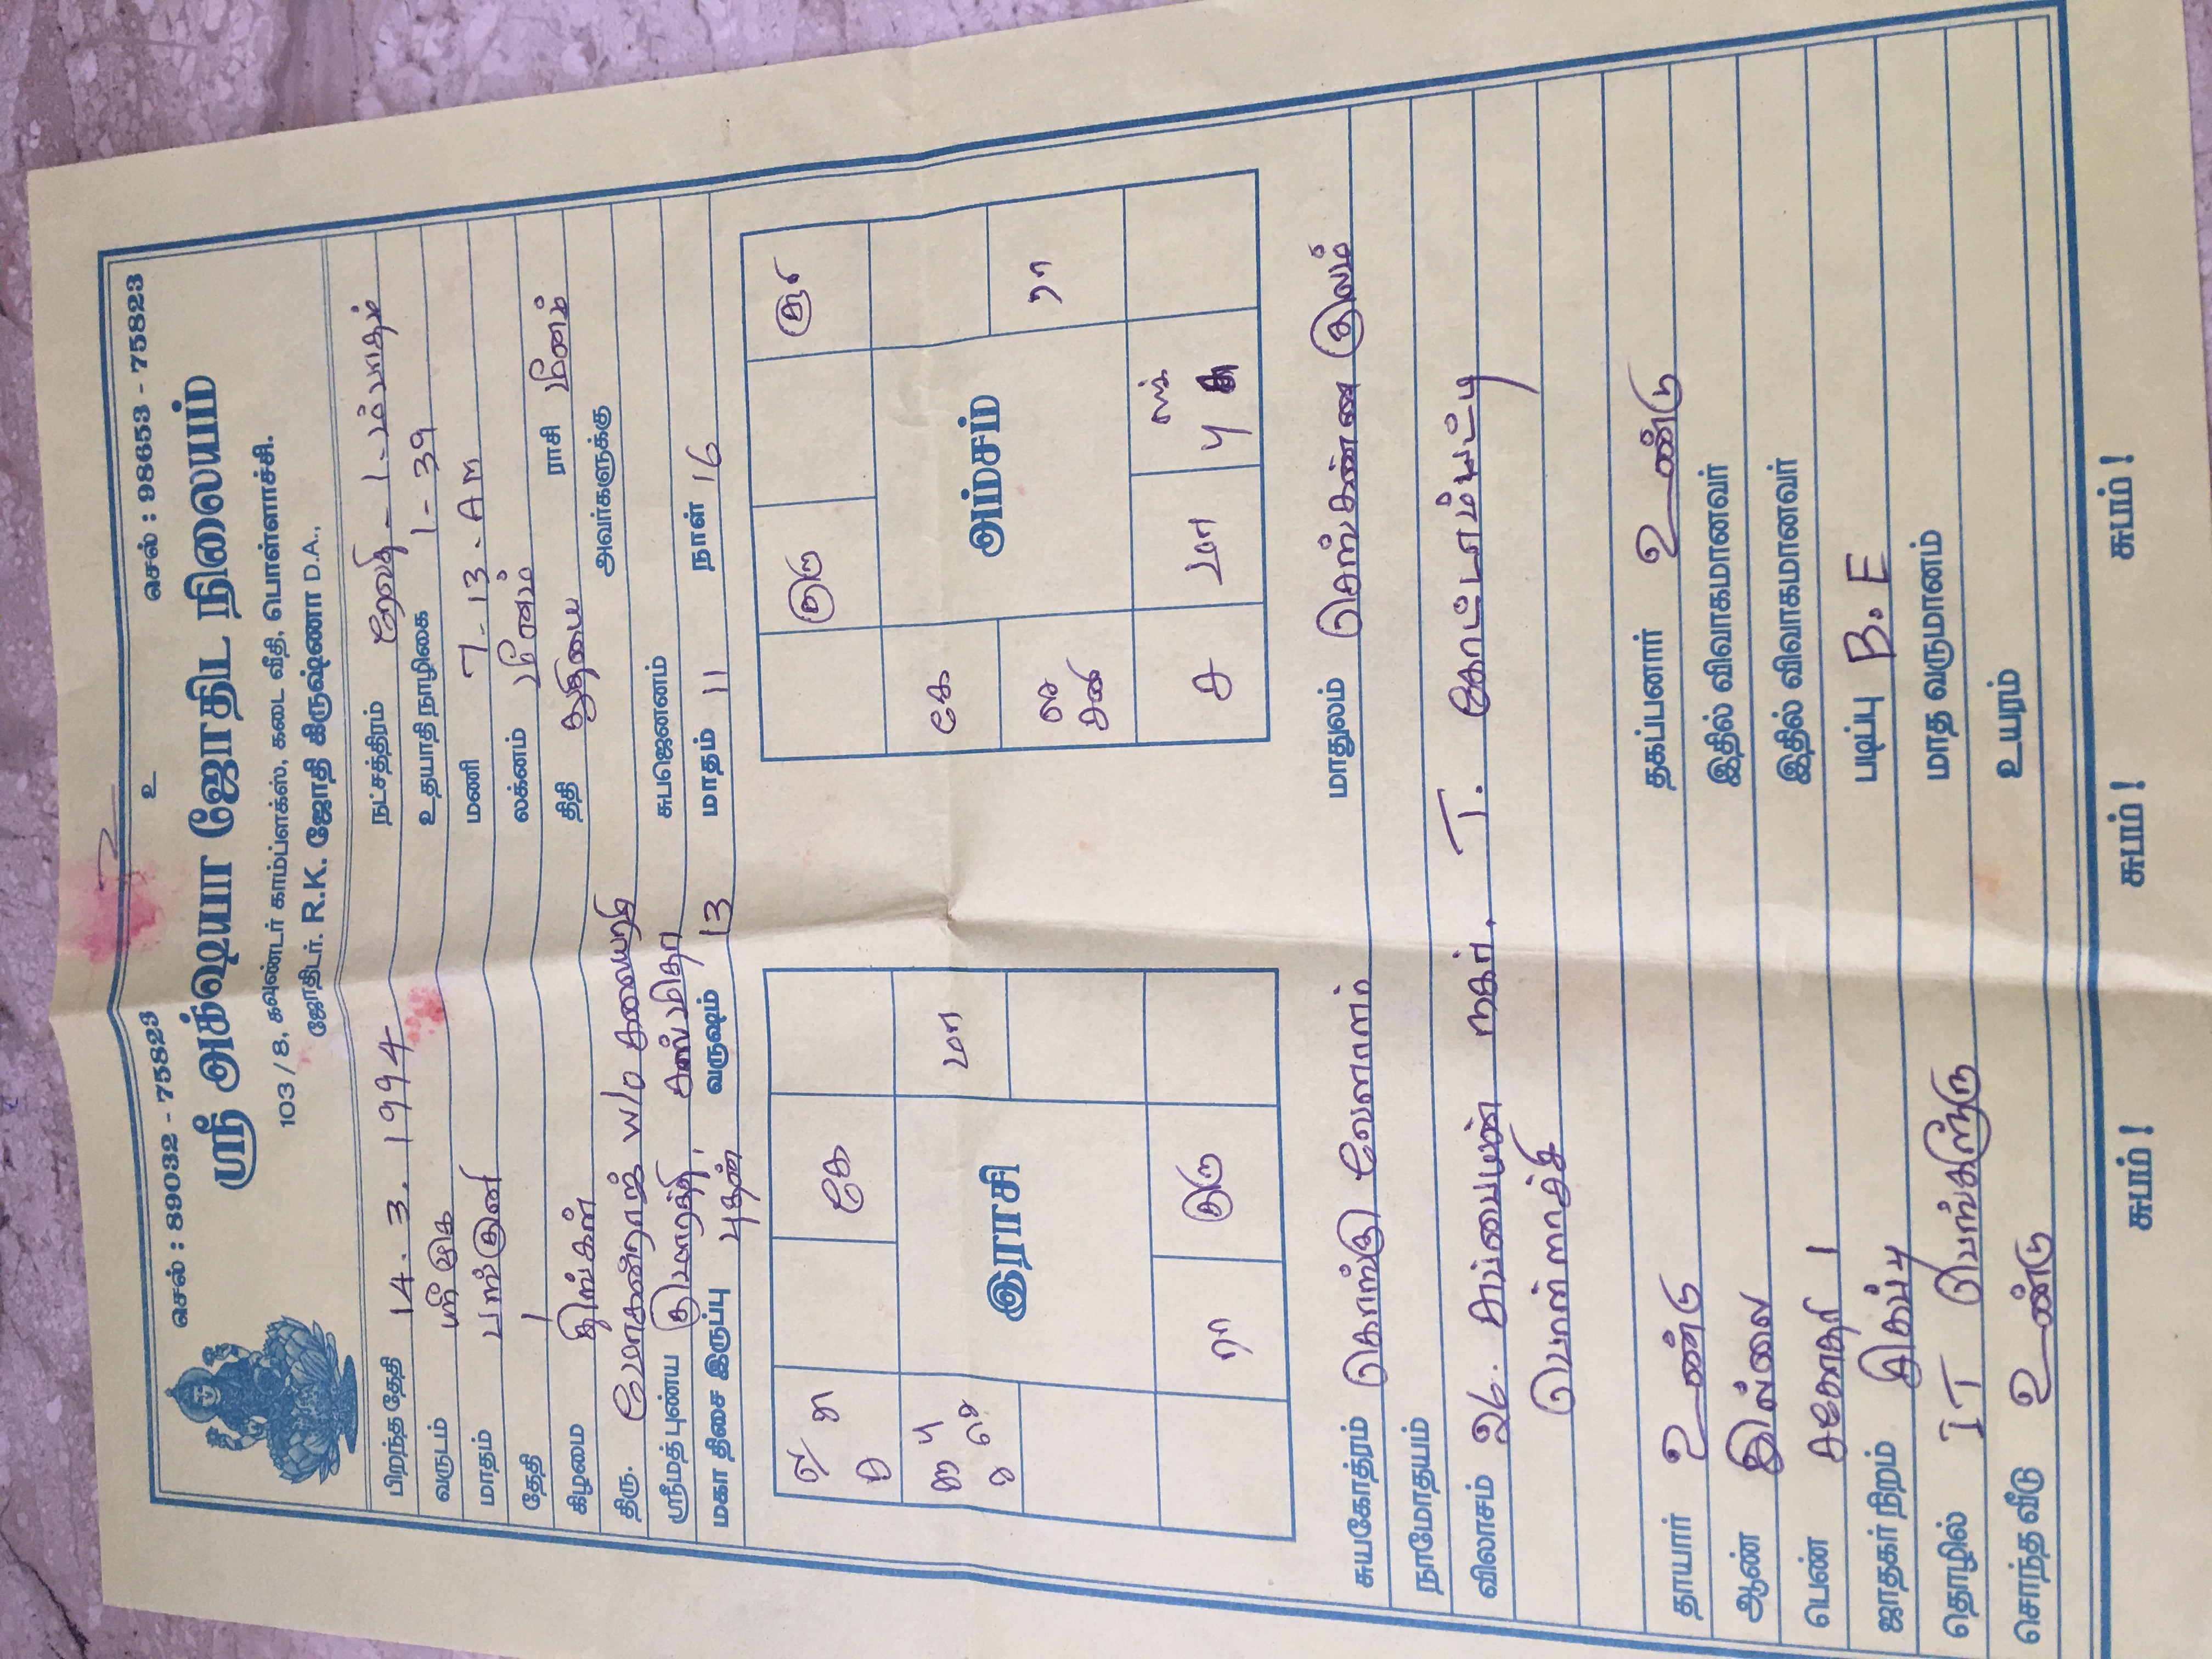 செல் : 89032 - 75823 உ செல் : 98653 - 75823
ஸ்ரீ அக்ஷயா ஜோதிட நிலையம்
103 / 8, கவுண்டர் காம்ப்ளக்ஸ், கடை வீதி, பொள்ளாச்சி.
ஜோதிடர். R.K. ஜோதி கிருஷ்ணா D.A.,
பிறந்த தேதி 14. 3. 1994 நட்சத்திரம் ரேவதி - 1 - ம்பாதம்
வருடம் ஸ்ரீமுக உதயாதி நாழிகை 1 - 39
மாதம் பங்குனி மணி 7 - 13 - AM
தேதி 1 லக்னம் மீனம்
கிழமை திங்கள் திதி துதியை ராசி மீனம்
திரு. மோகன்ராஜ் W/o கலையரசி அவர்களுக்கு
ஸ்ரீமத் புண்ய குமாரத்தி, சுபஜனனம்
மகா திசை இருப்பு புதன் வருஷம் 13 மாதம் 11 நாள் 16
ல கே குரு சூ
மா கே
இராசி அம்சம்
ரா
ரா குரு ச மா லக் பு
சுயகோத்ரம் கொங்கு வேளாளர் மாதுலம் செங்கண்ண குலம்
நாமோதயம்
விலாசம் 26. சுப்பையன் நகர். T. கோட்டாம்பட்டி
பொள்ளாச்சி
தாயார் உண்டு தகப்பனார் உண்டு
ஆண் இல்லை இதில் விவாகமானவர்
பெண் சகோதரி 1 இதில் விவாகமானவர்
ஜாதகர் நிறம் சிகப்பு படிப்பு B. E
தொழில் IT பெங்களூரு மாத வருமானம்
சொந்த வீடு உண்டு உயரம்
சுபம் ! சுபம் ! சுபம் !